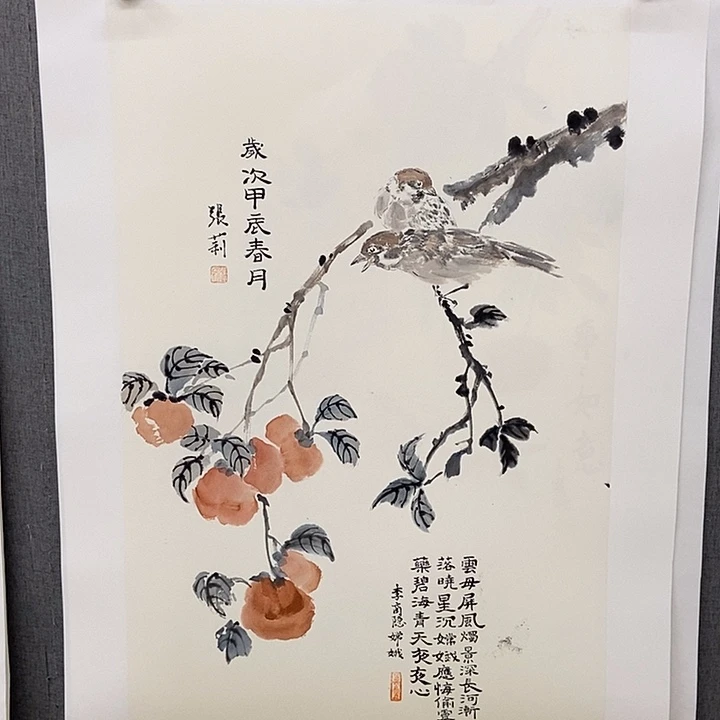 歲次甲辰春月
張莉
雲母屏風燭景深長河漸
落曉星沉嫦娥應悔偷靈
藥碧海青天夜夜心
李商隐嫦娥